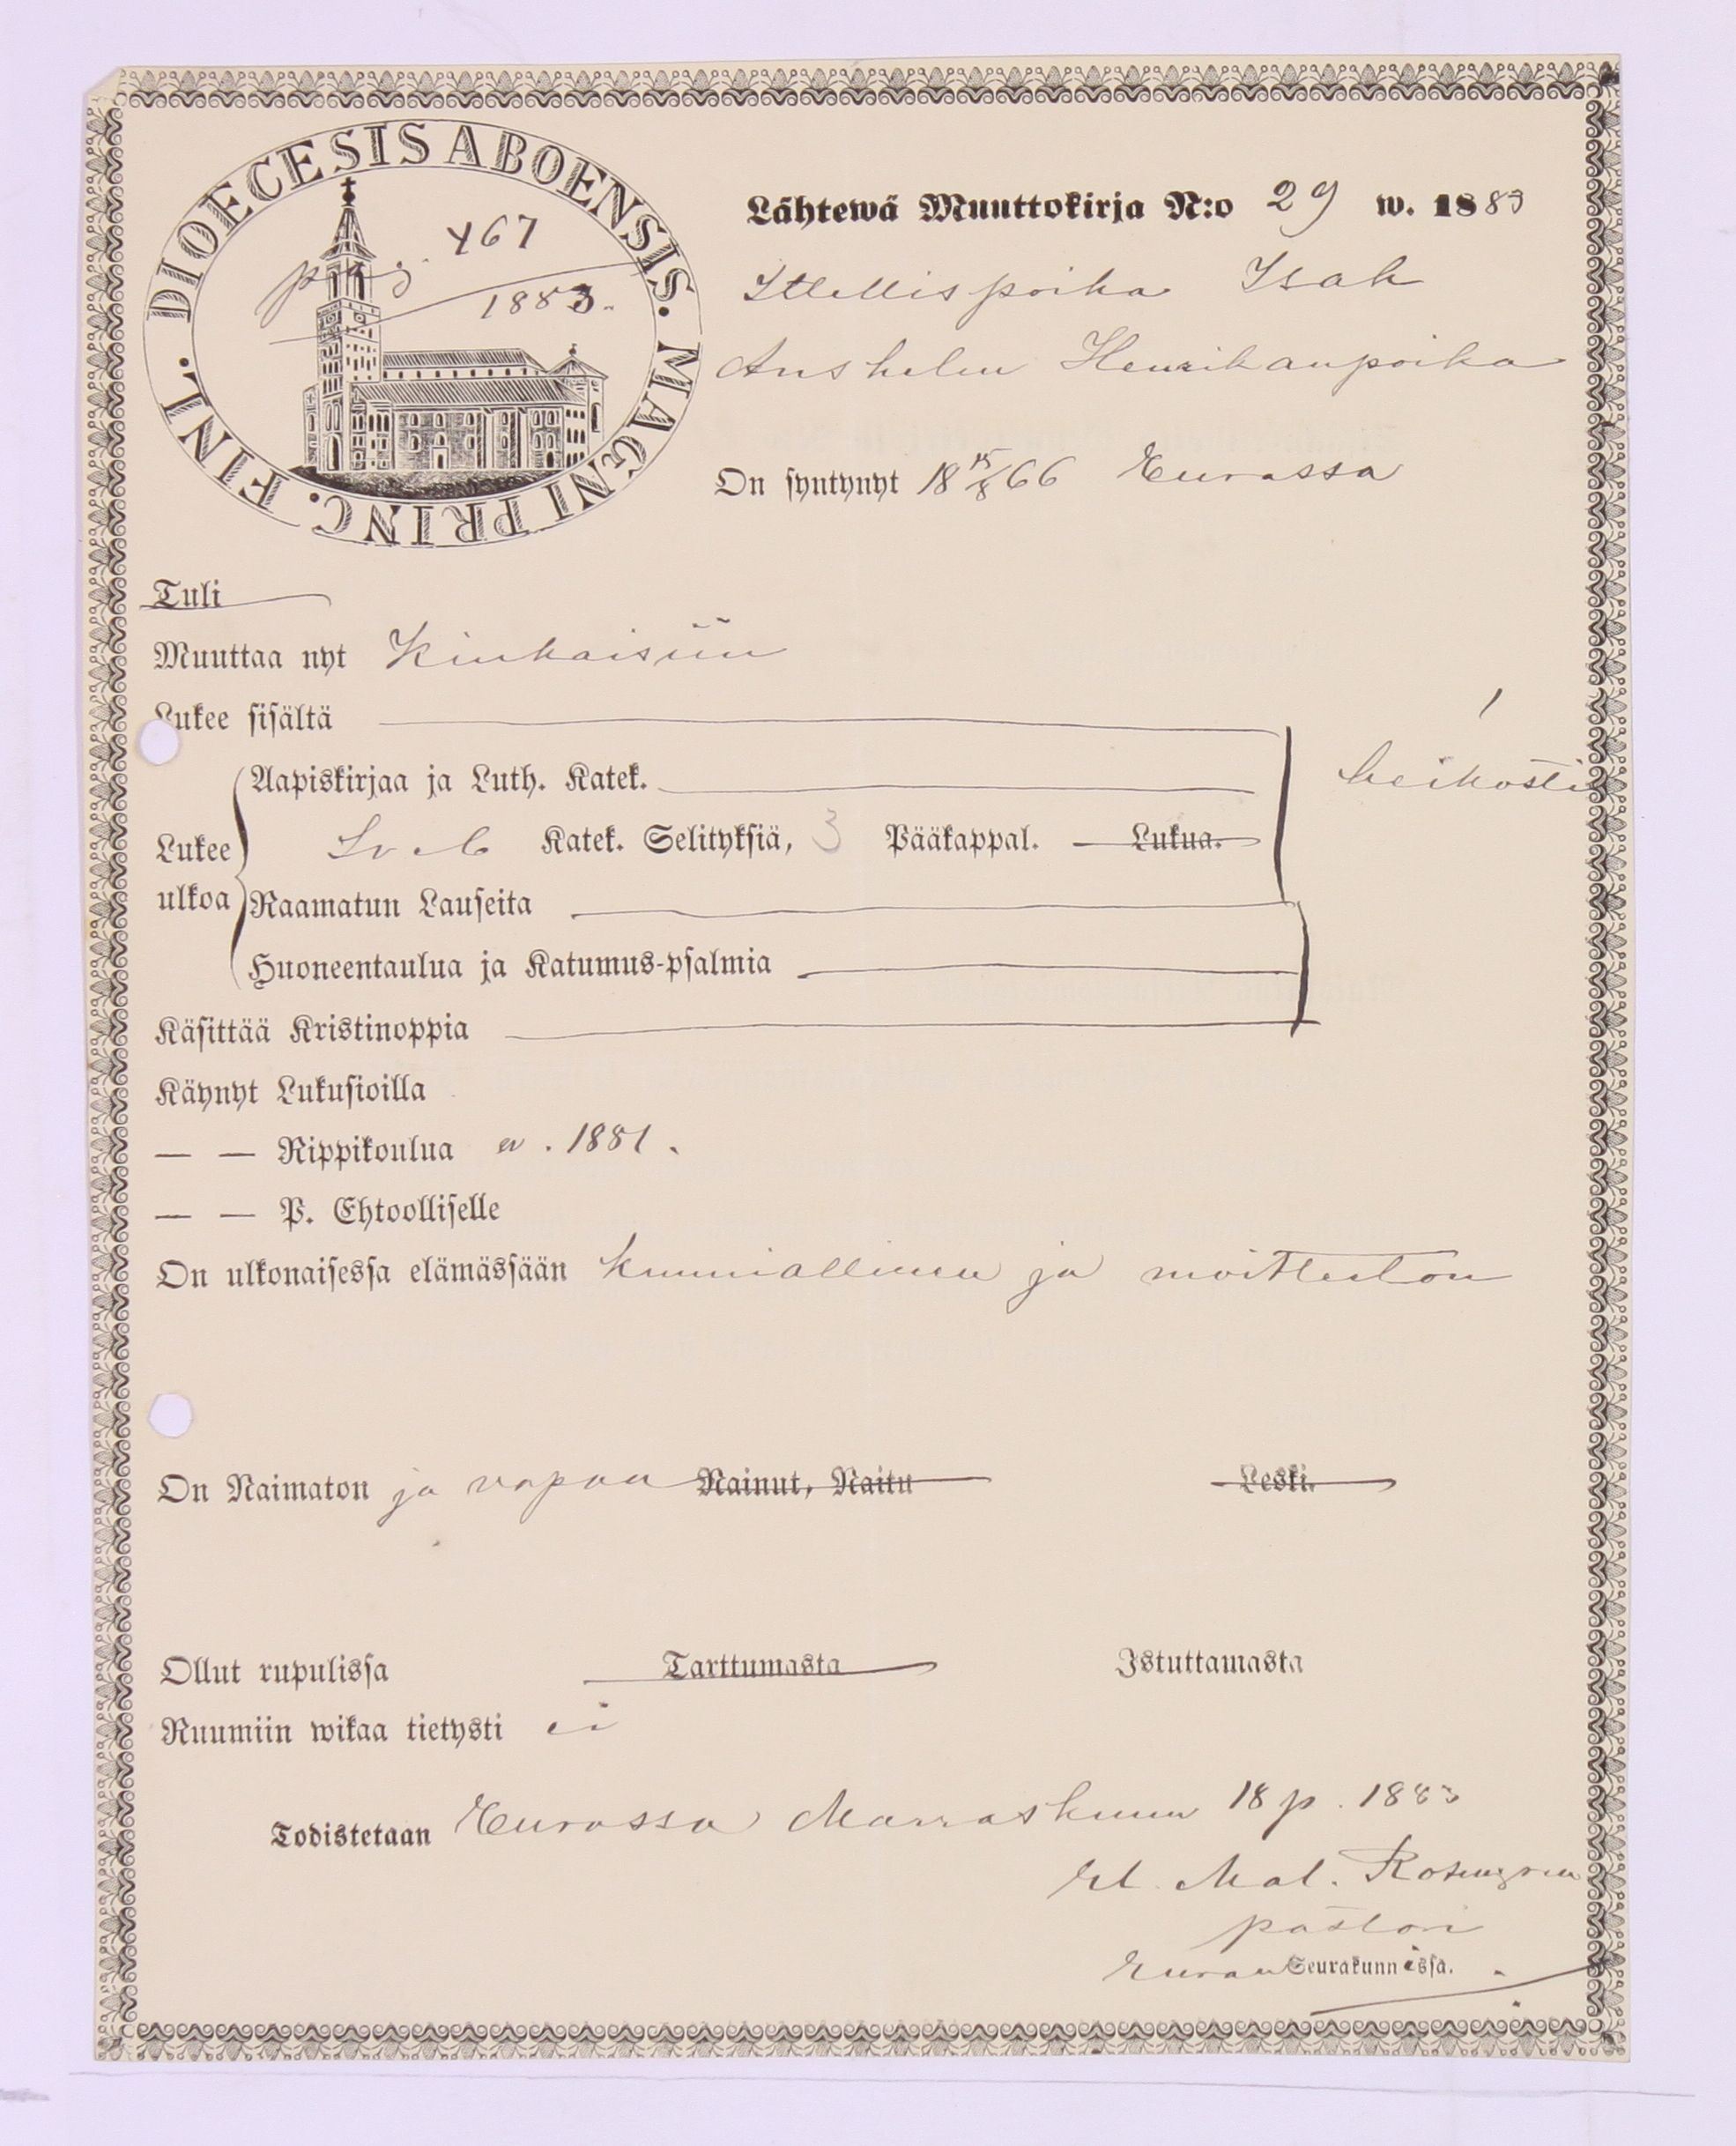 DIOECESIS ABOENSIS. MAGNI PRINC. FINL.
pag. 467
1883.
Lähtewä Muuttokirja N:o 29 w. 1883
Itellispoika Isak
Anshelm Henrikanpoika
On syntynyt 18 15/8 66 Eurassa
Tuli
Muuttaa nyt Kiukaisiin
Lukee sisältä
heikosti
Aapiskirjaa ja Luth. Katek.
Lukee ulkoa
Katek. Selityksiä, 3 Pääkappal. Lukua.
Raamatun Lauseita
Huoneentaulua ja Katumus-psalmia
Käsittää Kristinoppia
Käynyt Lukusioilla
— — Rippikoulua w. 1881.
— — P. Ehtoolliselle
On ulkonaisessa elämässään kunniallinen ja moitteeton
On Naimaton ja vapaa Nainut, Naitu Leski.
Ollut rupulissa Tarttumasta Istuttamasta
Ruumiin wikaa tietysti ei
Todistetaan Eurassa Marraskuun 18 p. 1883
Rosengren
pastori
Euran Seurakunnissa.